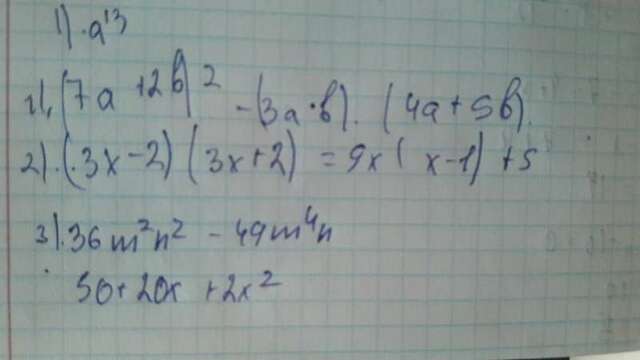 1) a¹³
2). (7a + 2b)² - (3a · b). (4a + 5b).
2). (3x - 2) (3x + 2) = 9x (x - 1) + 5
3). 36m²n² - 49m⁴n
50 + 20x + 2x²